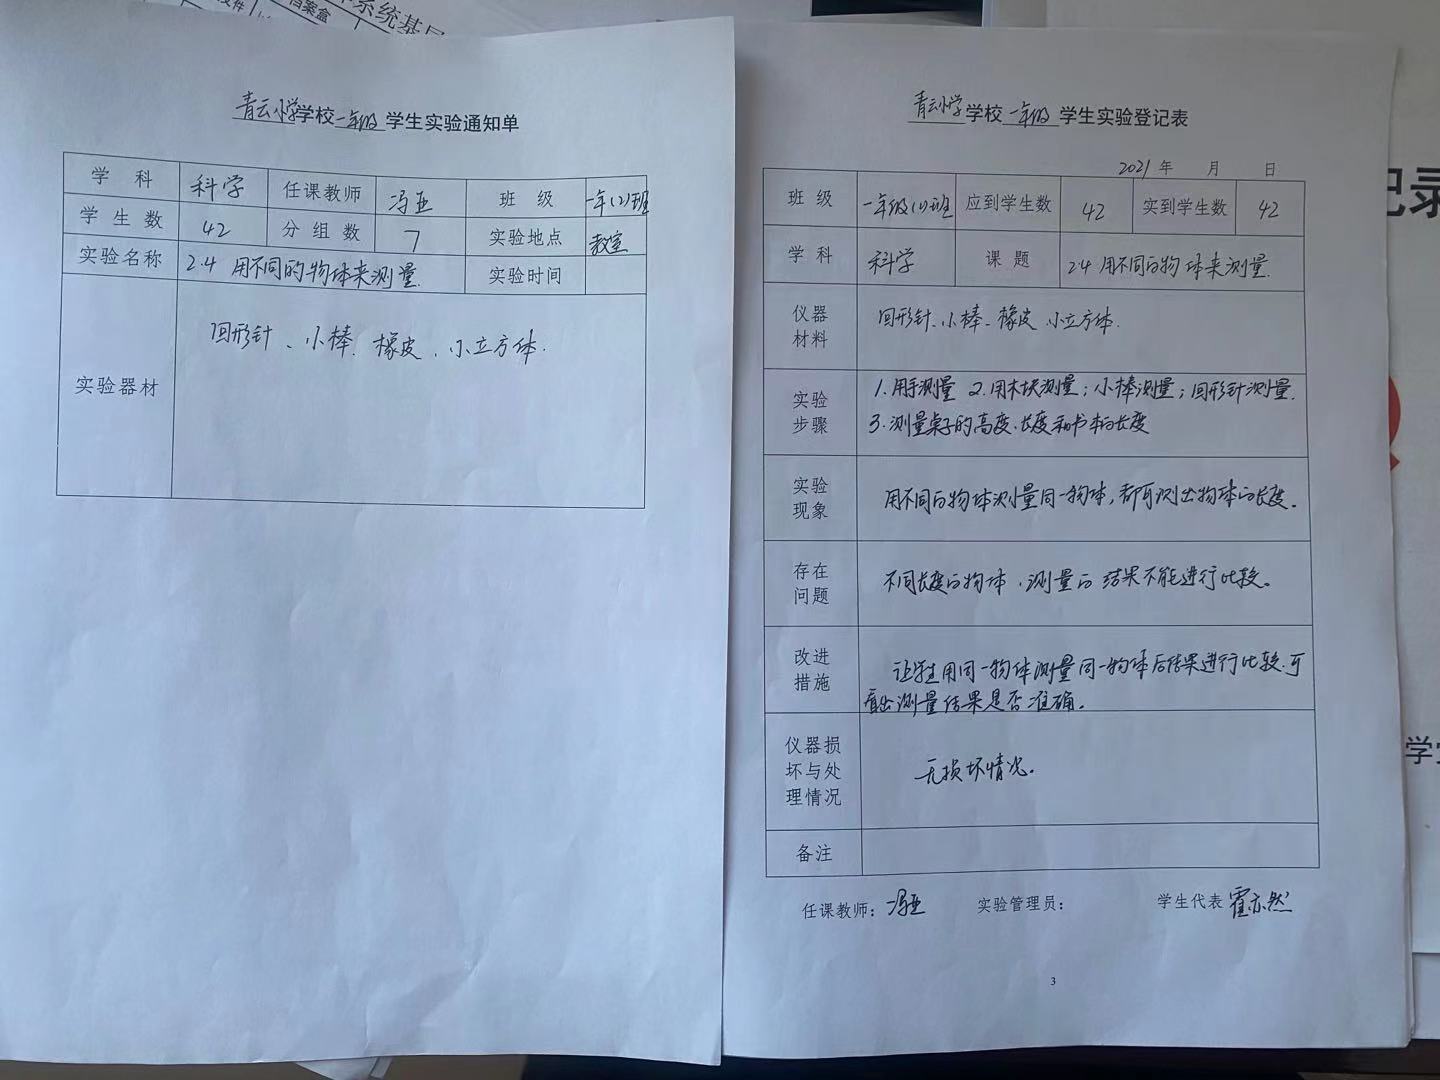 档案盒
系统基层
青云小学学校一年级学生实验通知单
学 科 科学 任课教师 冯亚 班 级 一年(2)班
学 生 数 42 分 组 数 7 实验地点 教室
实验名称 2.4 用不同的物体来测量. 实验时间
实验器材 回形针、小棒、橡皮、小立方体.
青云小学学校一年级学生实验登记表
2021年 月 日
班 级 一年级(1)班 应到学生数 42 实到学生数 42
学 科 科学 课 题 2.4 用不同的物体来测量.
仪器
材料
回形针、小棒、橡皮、小立方体.
实验
步骤
1.用手测量 2.用木块测量；小棒测量；回形针测量.
3.测量桌子的高度、长度和书本的长度
实验
现象
用不同的物体测量同一物体，都可测出物体的长度。
存在
问题
不同长度的物体，测量的结果不能进行比较。
改进
措施
让学生用同一物体测量同一物体后结果进行比较.可
看出测量结果是否准确。
仪器损
坏与处
理情况
无损坏情况.
备注
任课教师：冯亚 实验管理员： 学生代表 霍亦然
3
记录